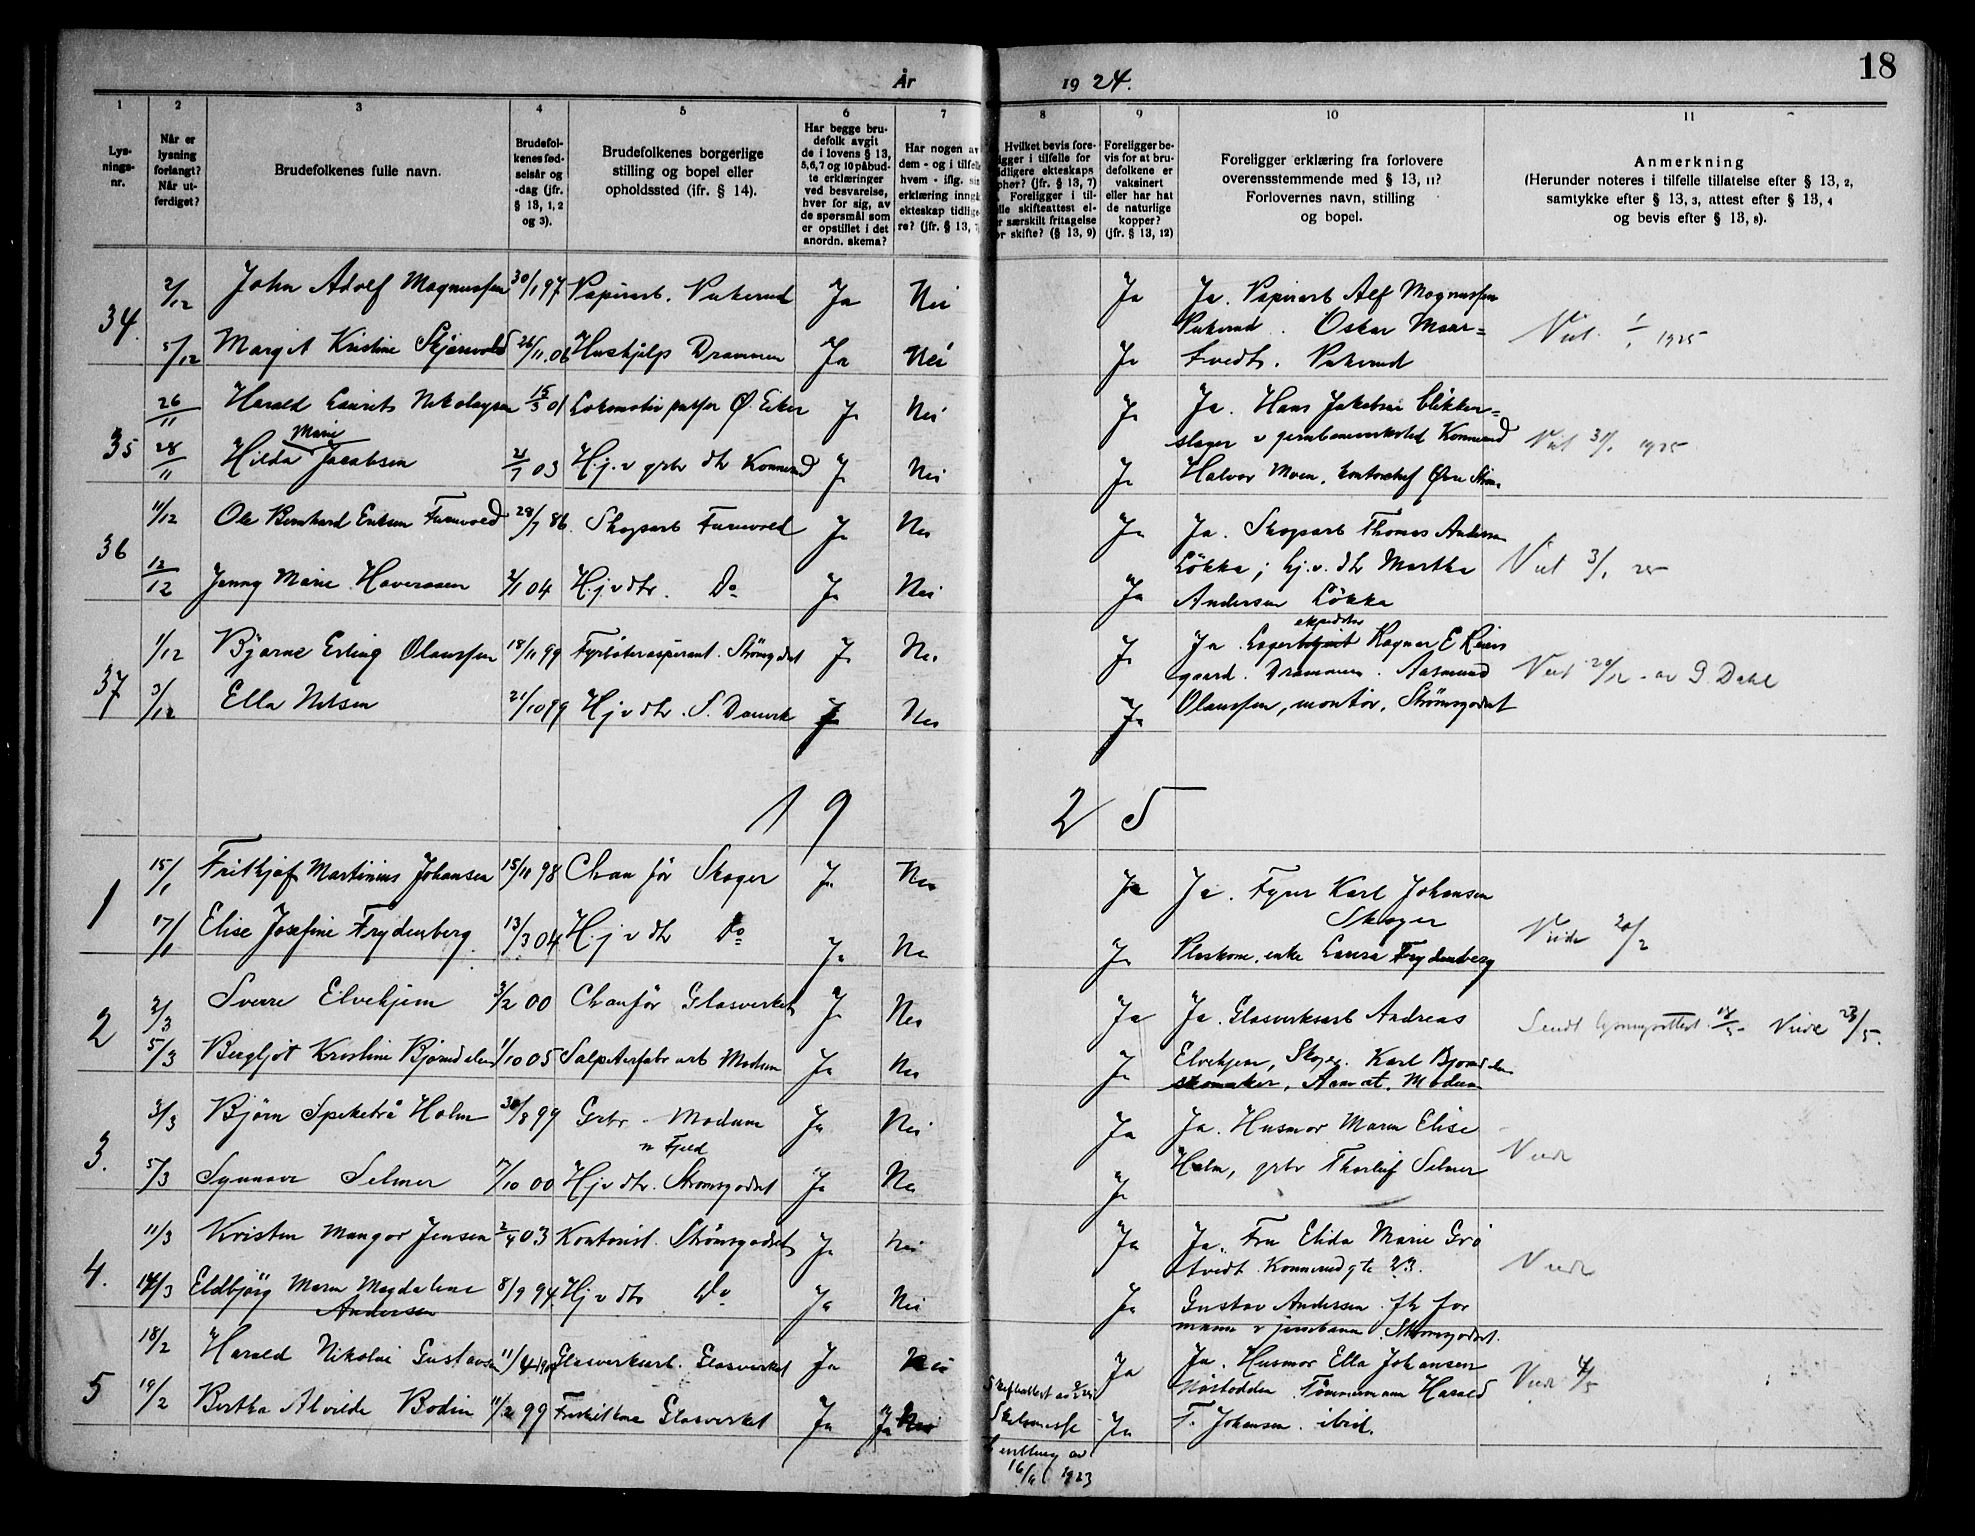 18
År 1924.
1 2 3 4 5 6 7 8 9 10 11
Lys-
nings-
nr.
Når er
lysning
forlangt?
Når ut-
ferdiget?
Brudefolkenes fulle navn.
Brudefol-
kenes fød-
selsår og
-dag (jfr.
§ 13, 1, 2
og 3).
Brudefolkenes borgerlige
stilling og bopel eller
opholdssted (ifr. § 14).
Har begge bru-
defolk avgit
de i lovens § 13,
5,6,7 og 10 påbud-
te erklæringer
ved besvarelse,
hver for sig, av
de spørsmål som
er opstillet i det
anordn. skema?
Har nogen av
dem - og i tilfelle
hvem - iflg. sin
erklæring inngå
ekteskap tidlige-
re? (jfr. § 13, 7
Hvilket bevis fore-
ligger i tilfelle for
tidligere ekteskaps
ophør? (jfr. § 13, 7)
Foreligger i til-
felle skifteattest el-
er særskilt fritagelse
or skifte? (§ 13, 9)
Foreligger be-
vis for at bru-
defolkene er
vaksinert
eller har hat
de naturlige
kopper?
(jfr. § 13, 12)
Foreligger erklæring fra forlovere
overensstemmende med § 13, 11?
Forlovernes navn, stilling
og bopel.
Anmerkning
(Herunder noteres i tilfelle tillatelse efter § 13, 2,
samtykke efter § 13, 3, attest efter § 13, 4
og bevis efter § 13, 8).
34. 2/12 John Adolf Magnussen 30/1 97 Papirarb. Ja Nei Ja Ja. Papirarb Alf Magnussen
Oskar Maar-
5/12 Margit Kristine Skjærvold 26/11 06 Hushjelp Drammen Ja Nei Ja tvedt. 1925
35 26/11 Harald Laurits Nikolaysen 15/3 01 Lokomotiv pusser Ø. Eker Ja Nei Ja Ja. Hans Jakobsen blikken-
slager v jernbaneverksted Konnerud
28/11 Hilda Marie Jacobsen 21/7 03 Hj. v grbr dtr Konnerud Ja Nei Ja Halvor Moen, kontorchef Øvre Strm. Viet 31/1 1925
36 11/12 Ole Bernhard Eriksen Furuvold 28/7 86. Skogsarb Furuvold Ja Nei Ja Ja. Skogsarb Thomas Andersen
Løkka; hj. v. dtr Martha
12/12 Jenny Marie Haversen 2/1 04 Hj. v dtr. Do Ja Nei Ja Andersen Løkka Viet 3/1 25
37 1/12 Bjarne Erling Olaussen 18/11 99 Fyrbøteraspirant. Strømsgodset Ja Nei Ja Ja Lager ekspeditør Ragnar E
gaard. Drammen. Aasmund
3/12 Ella Nilsen 21/10 99 Hj v dtr. S. Ja Nei Ja Olaussen, montør, Strømsgodset Viet 20/12 - av G. Dahl
1925
1 15/1 Frithjof Martinius Johansen 15/11 98 Chauffør Skoger Ja Nei Ja Ja. Fyrer Karl Johansen
Skoger
17/1 Elise Josefine Frydenberg. 13/3 04 Hj. v dtr Do Ja Nei Ja enke Laura Frydenberg Viede 20/2
2 2/3 Sverre Elvehjem 3/2 00 Chauffør Glasverket Ja Nei Ja Ja. Glasverksarb Andreas
5/3 Bergljot Kristine Bjørndalen 1/10 05 Salpeterfabr arb Modum Ja Nei Ja Elvehjem, Skoger. Karl Bjørndalen
skomaker, Aamot. Modum Sendt lysningsattest Viede 23/5.
3. 3/3 Bjørn Speketrå Holm 30/8 99 Grbr - Modum Ja Nei Ja Ja. Husmor Maren Elise
n Fjeld
5/3 Synnøve Selmer 7/10 00 Hj v dtr. Strømsgodset Ja Nei Ja Holm, grbr Thorleif Selmer Viede
4. 11/3 Kristen Mangor Jensen 2/4 03 Kontorist. Strømsgodset Ja Nei Ja Ja. Fru Elida Marie Grø
tvedt. Konnerudgte 23.
14/3 Eldbjørg Maren Magdalene
Andersen 8/9 94 Hj v dtr Do Ja Nei Ja Gustav Andersen fh for
mann v jernbanen. Strømsgodset. Viede
5 18/2 Harald Nikolai Gustavsen 11/4 Glasverksarb. Glasverket Ja Nei Ja Ja. Husmor Ella Johansen
Nøstodden Tømmermann Harald
19/2 Bertha Alvilde Bodin 11/2 99 Glasverket Ja Ja Ja F. Johansen. ibid. Viede 4/5
16/4 1923